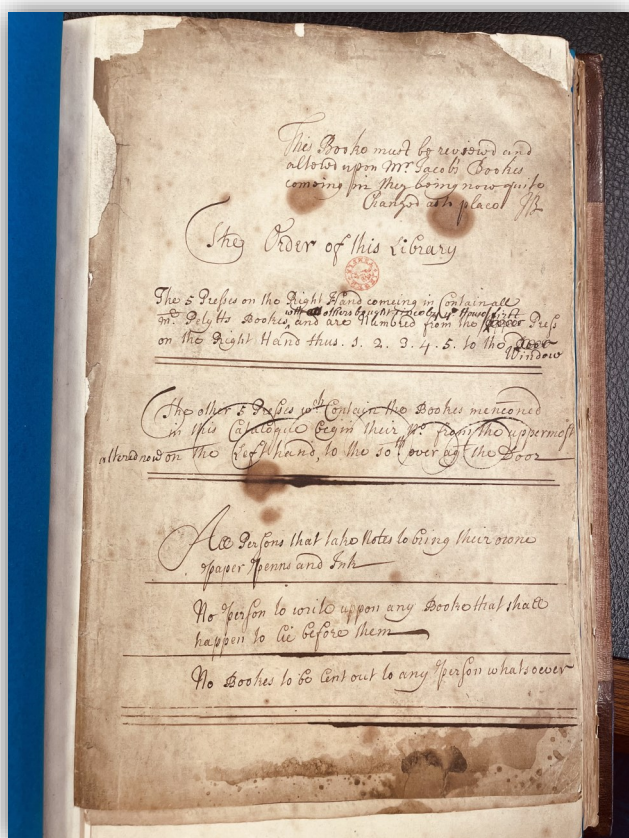 This Booke must be revised and
altered upon Mr. Jacobs Bookes
comeing in they being now quite
Changed ach place
The Order of this Library
The 5 Presses on the Right Hand comeing in Contain all
Mr. Petyts Bookes, and are Numbred from the first Press
with others bought
on the Right Hand thus. 1. 2. 3. 4. 5. to the
Window
The other 5 Presses wch Contain the Bookes menconed
in this Catalogue begin their No. from the uppermost
altered now on the Left hand, to the 10th over agt the Door
All Persons that take Notes to bring their owne
paper penns and Ink
No person to write uppon any Booke that shall
happen to lie before them
No Bookes to be Lent out to any person whatsoever